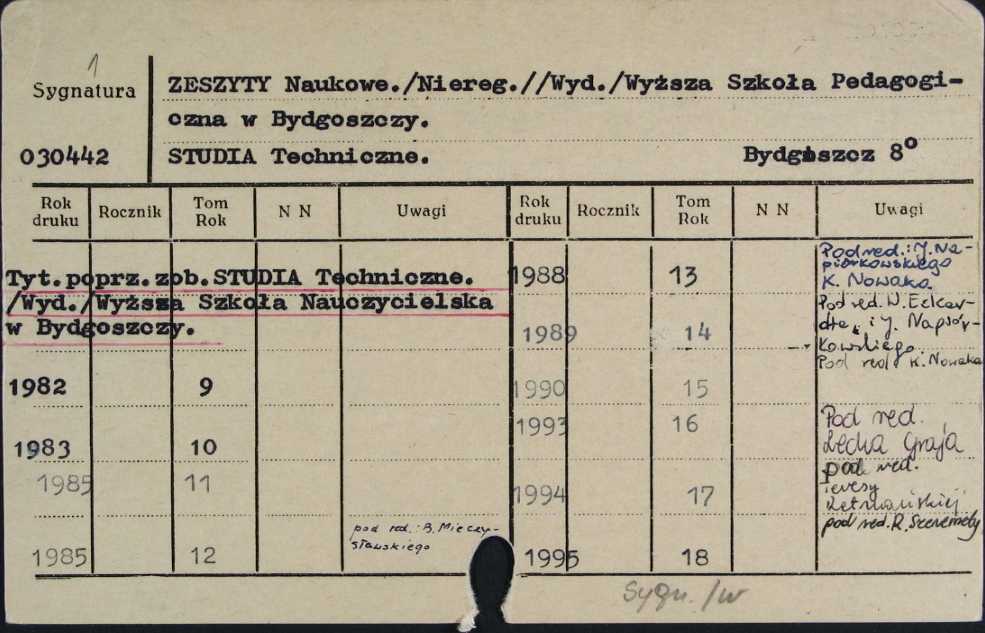 1
Sygnatura
030442
ZESZYTY Naukowe./Niereg.//Wyd./Wyższa Szkoła Pedagogi-
czna w Bydgoszczy.
STUDIA Techniczne. Bydgoszcz 8°
Rok druku Rocznik Tom Rok N N Uwagi Rok druku Rocznik Tom Rok N N Uwagi
Tyt.poprz.zob.STUDIA Techniczne.
/Wyd./Wyższa Szkoła Nauczycielska
w Bydgoszczy.
1982 9
1983 10
1985 11
1985 12 pod red.: B. Mieczy-
sławskiego
1988 13 Pod red.: J. Na-
piórkowskiego
K. Nowaka
1989 14 Pod red. W. Eckar-
dte, i J. Napiór-
kowskiego
1990 15 Pod red K. Nowaka
1993 16 Pod red.
Lecha Graja
1994 17 pod red.
Ketrzańskiej
1995 18 pod red. R. Szeremety
Sygn./w